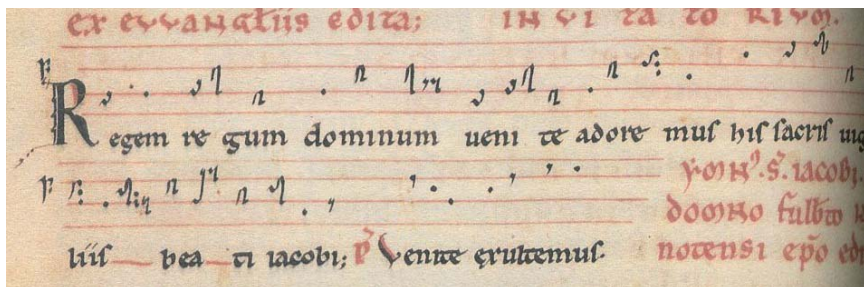 ex evvangliis edita; in vi ta to rivm.
Regem re gum dominum ueni te adore mus his sacris uig
ymn9. s. iacobi.
liis bea ti iacobi; p Venite exultemus.
domno fulb'to
notensi ep̄o edi